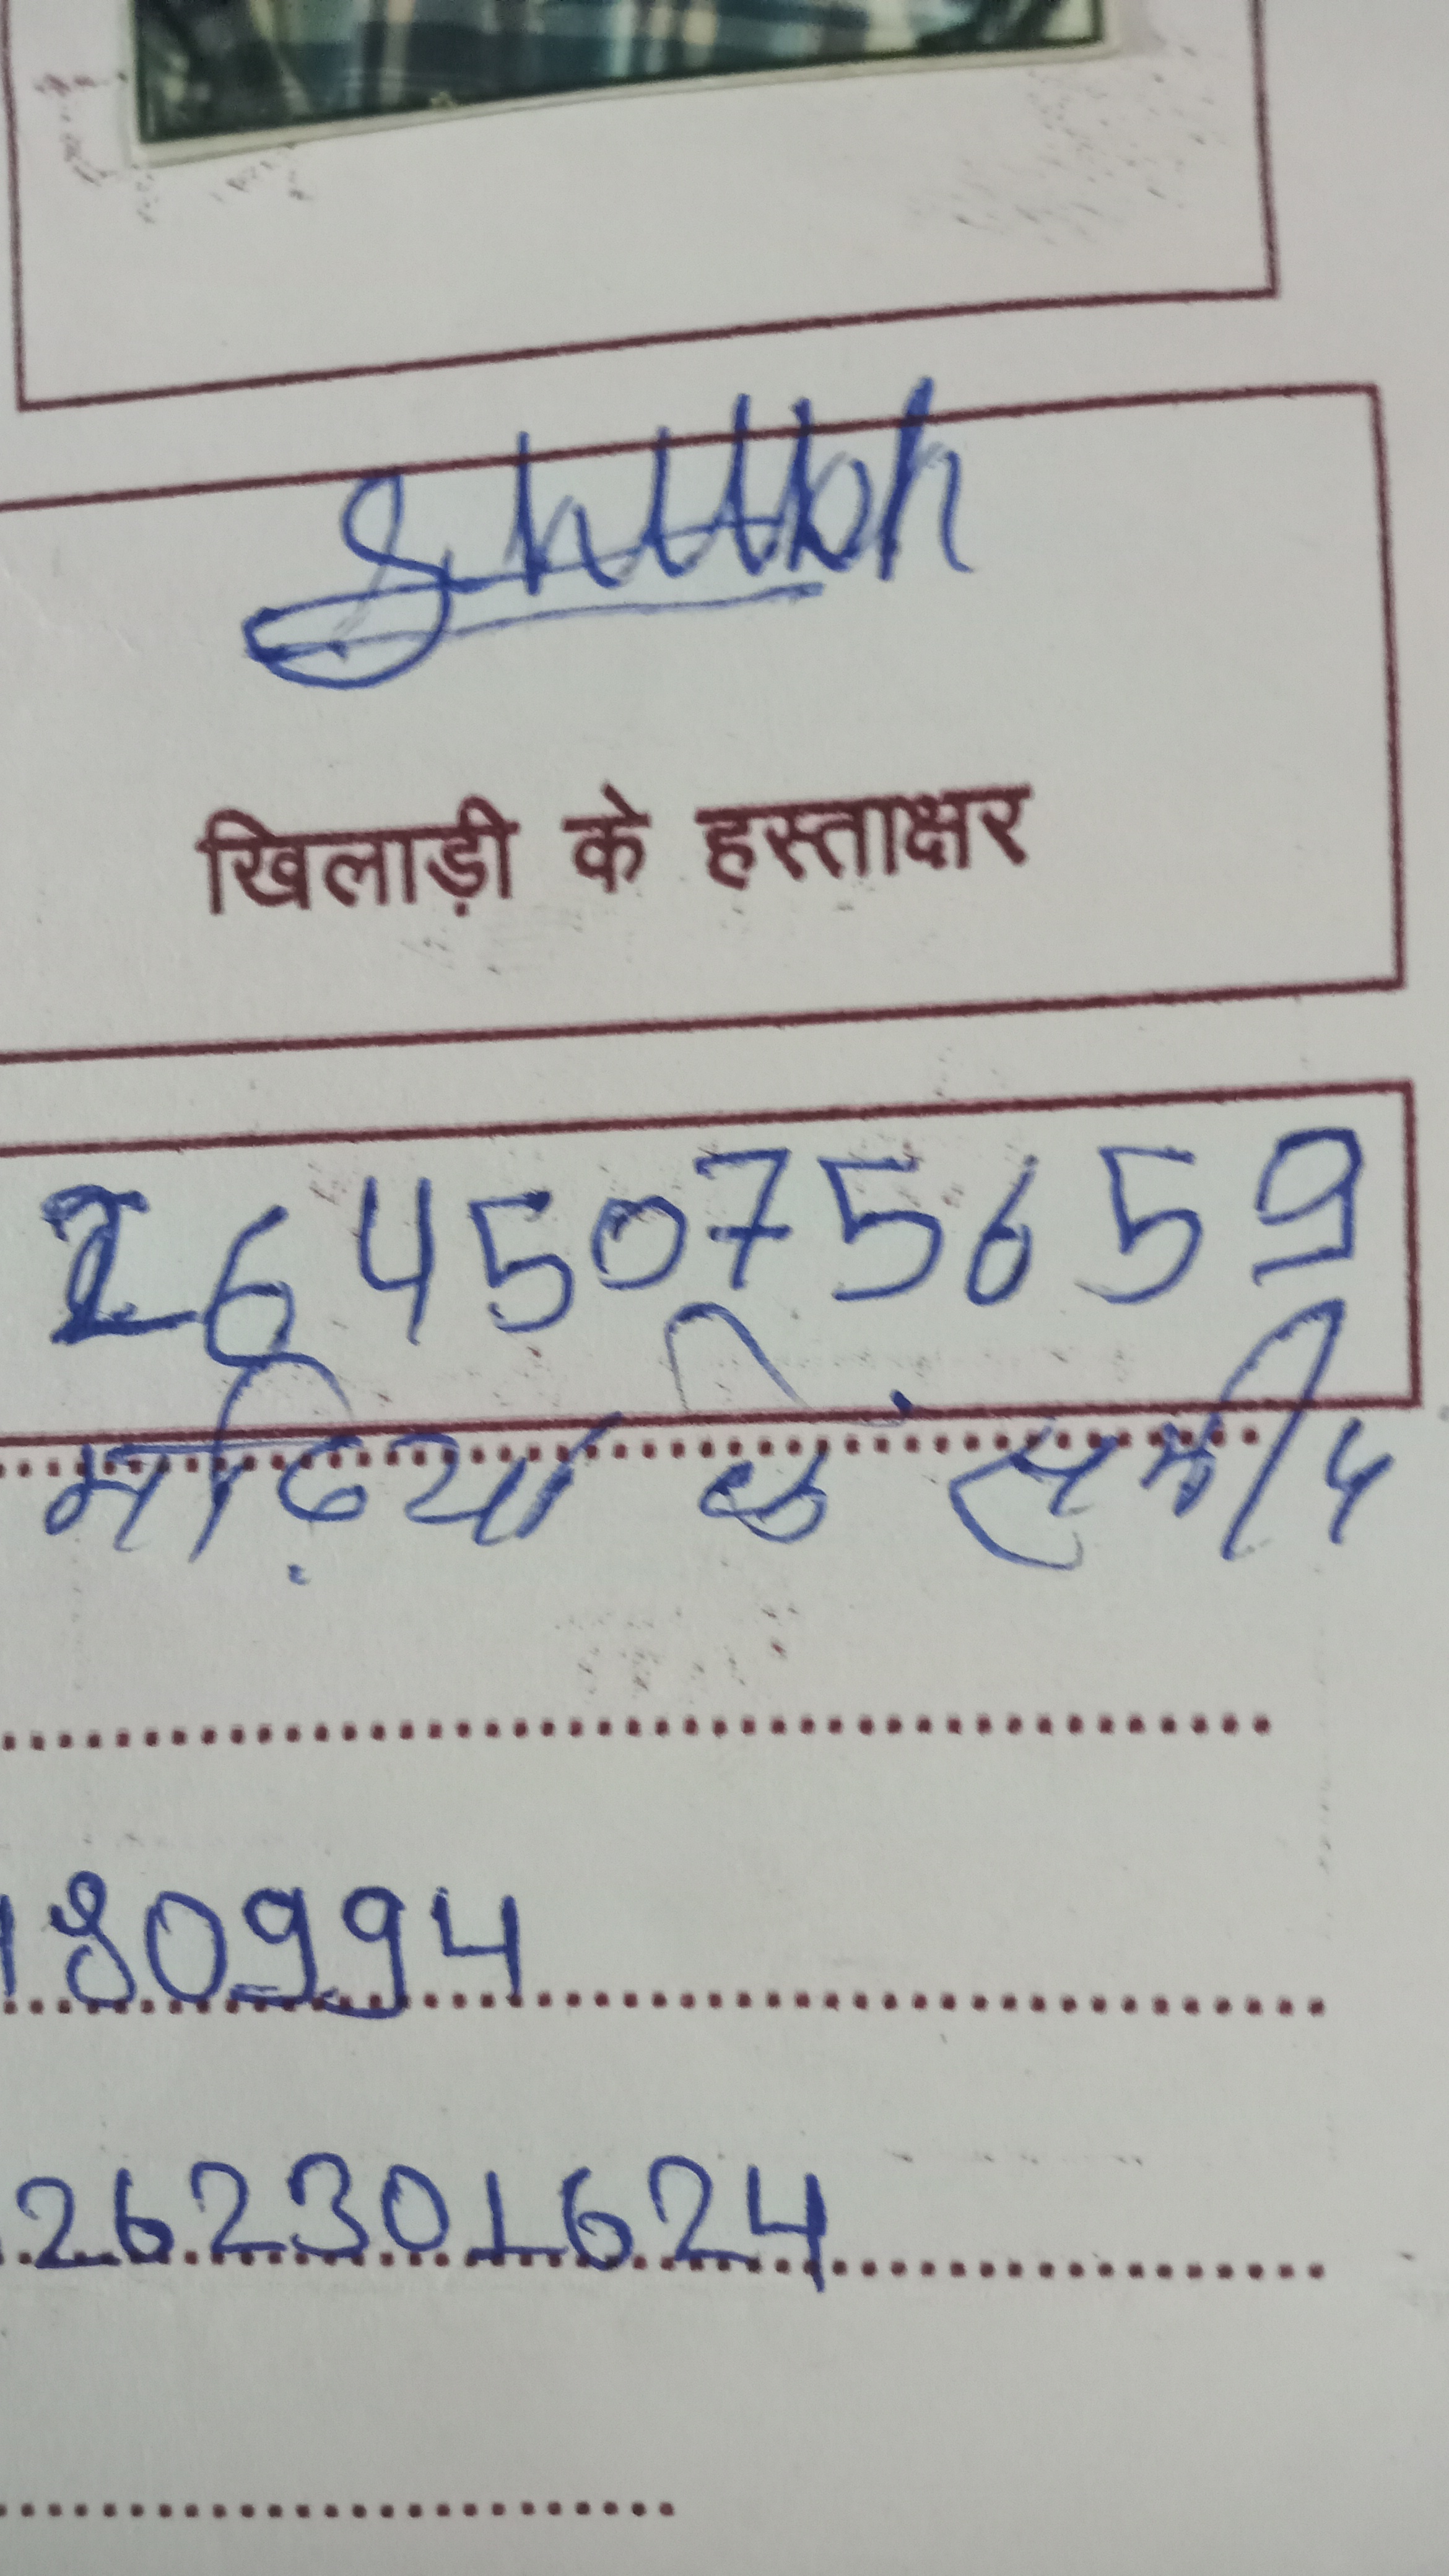 Shubh
खिलाड़ी के हस्ताक्षर
2645075659
मढ़िया के समीप
180994
262301624